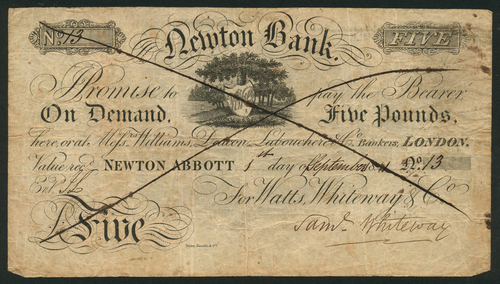 No. 13 FIVE
Newton Bank.
I Promise to pay the Bearer
On Demand, Five Pounds,
here, or at Messrs. Williams, Deacon, Labouchere & Co. Bankers, LONDON.
Value recd. NEWTON ABBOTT 1st day of September No. 13
For Watts, Whiteway & Co
£ Five
Saml. Whiteway